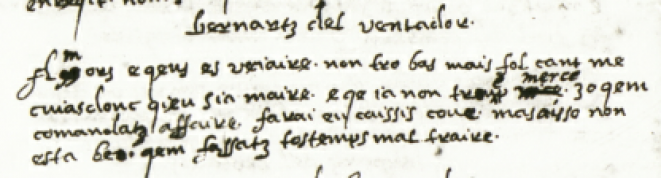 bernartz del ventador.
e qeus es veiaire. non tro bas mais fol cant me
cuias donc qieu sia maire. e qe ia non merce. zo qem
comandatz affaire. farai eu caissis cove. mas aisso non
esta be. qem fassatz tostemps mal traire.